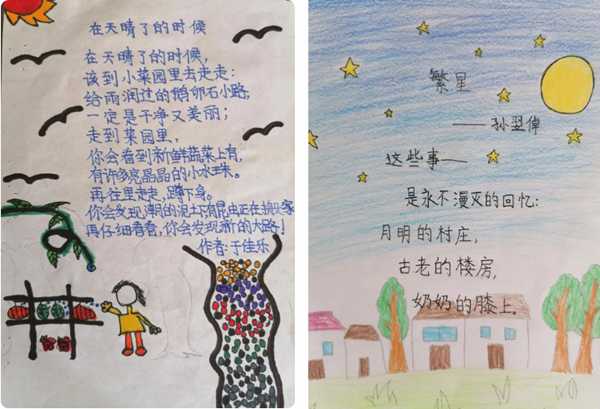 在天晴了的时候
在天晴了的时候，
该到小菜园里去走走：
给雨润过的鹅卵石小路，
一定是干净又美丽；
走到菜园里，
你会看到新鲜蔬菜上有，
有许多亮晶晶的小水珠。
再往里走走，蹲下身。
你会发现潮的泥土下有昆虫正在搬家
再仔细看看，你会发现新的大路！
作者：于佳乐
繁星
——孙翌倬
这些事——
是永不漫灭的回忆：
月明的村庄，
古老的楼房，
奶奶的膝上。